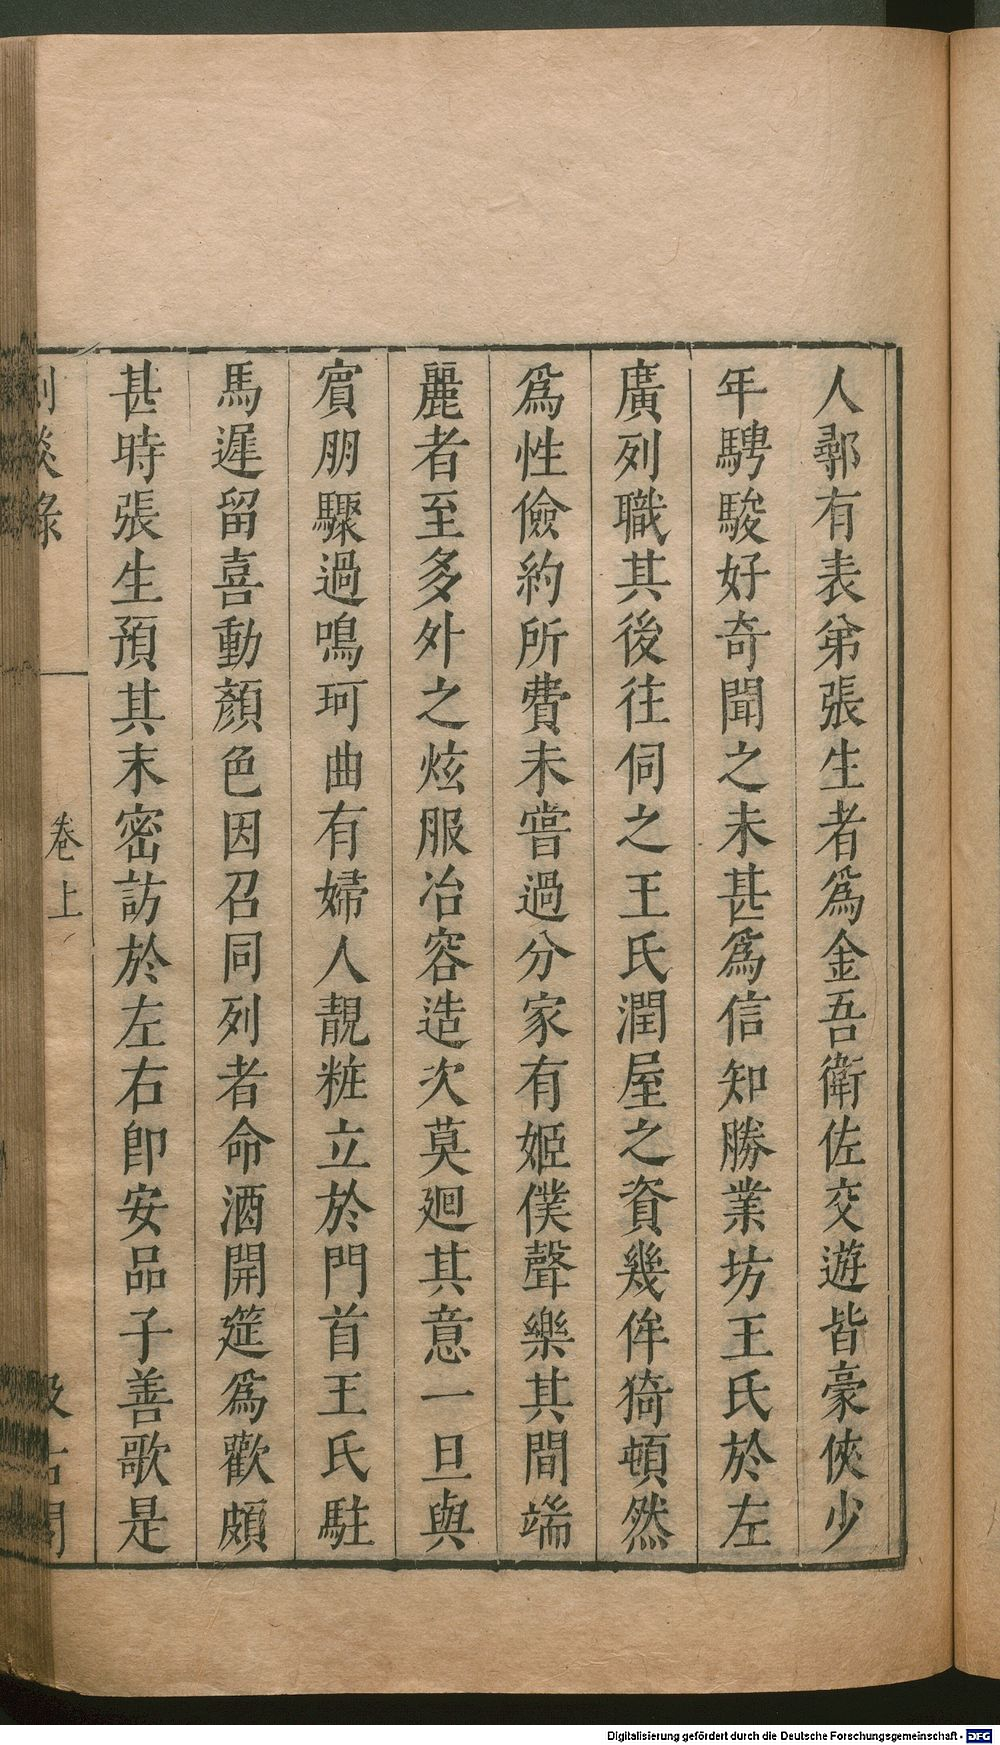 人鄠有表弟張生者爲金吾衛佐交遊皆豪俠少
年騁駿好奇聞之未甚爲信知勝業坊王氏於左
廣列職其後往伺之王氏潤屋之資幾侔猗頓然
爲性儉約所費未嘗過分家有姬僕聲樂其間端
麗者至多外之炫服冶容造次莫廻其意一旦與
賓朋驟過鳴珂曲有婦人靚粧立於門首王氏駐
馬遲留喜動顏色因召同列者命酒開筵爲歡頗
甚時張生預其末密訪於左右卽安品子善歌是
劇談錄
卷上
汲古閣
Digitalisierung gefördert durch die Deutsche Forschungsgemeinschaft - DFG